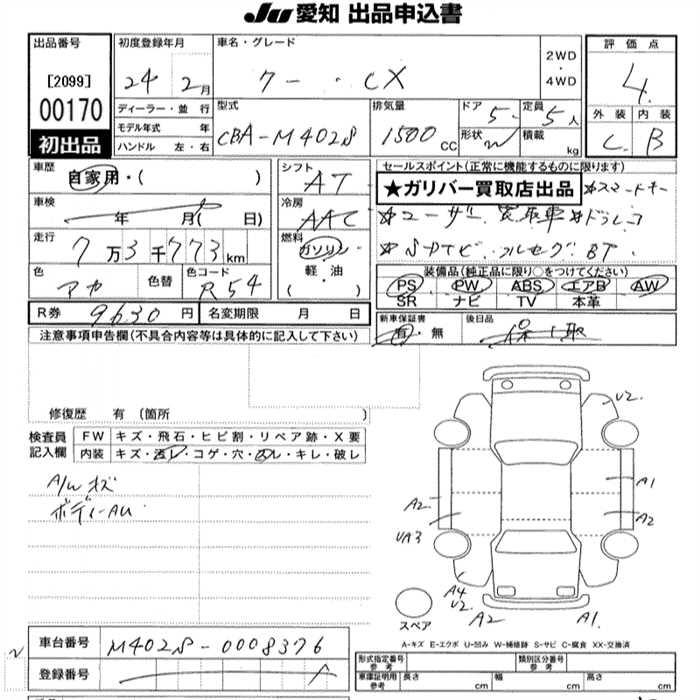 JU 愛知 出品申込書
出品番号
[2099]
00170
初出品
初度登録年月
24年 2月
ディーラー・並行
モデル年式 年
ハンドル 左・右
車名・グレード
クー ・ CX
2WD
・
4WD
型式
CBA-M402S
排気量
1500 CC
ドア 5
形状 W
定員 5人
積載 kg
評価点
4.
外装 内装
C B
車歴
自家用・( )
車検
年 月( 日)
走行
7万3千773km
色
アカ
色替
色コード
R54
シフト
AT
冷房
AAC
燃料
ガソリン
・
軽・油
( )
セールスポイント(正常に機能するものに限ります)
★ガリバー買取店出品 ☆スマートキー
☆ユーザー買取車☆ドラレコ
☆SDナビ フルセグ BT
装備品(純正品に限り○をつけてください)
PS PW ABS エアB AW
SR ナビ TV 本革
R券 9630円
名変期限 月 日
新車保証書
有・無
後日品
保 取
注意事項申告欄(不具合内容等は具体的に記入して下さい)
修復歴 有(箇所 )
検査員
記入欄
FW キズ・飛石・ヒビ割・リペア跡・X要
内装 キズ・汚レ・コゲ・穴・スレ・キレ・破レ
A/W キズ
ボディーAU
U2
A1
A2
A2
UA3
A4
U2
A2
A1
スペア
A-キズ E-エクボ U-凹み W-補修跡 S-サビ C-腐食 XX-交換済
車台番号 M402S-0008376
登録番号
形式指定番号
参考
類別区分番号
参考
車庫証明用
参考
長さ cm
幅 cm
高さ cm